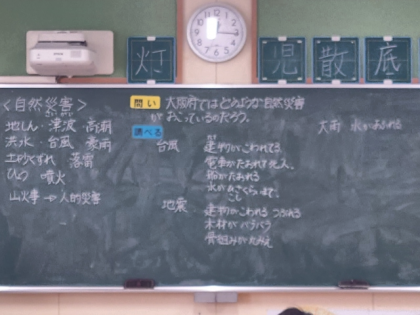 灯
児
散
底
<自然災害>
地しん・津波・高潮
洪水・台風・豪雨
土砂くずれ 落雷
ひょう 噴火
山火事→人的災害
問い 大阪府ではどのような自然災害
がおこっているのだろう。
調べる
台風 建物がこわれてる
電車がたおれ
船がたおれる
水が
こし
地震 建物がこわれる つぶれる
木材がバラバラ
骨組みが
大雨 水があふれる